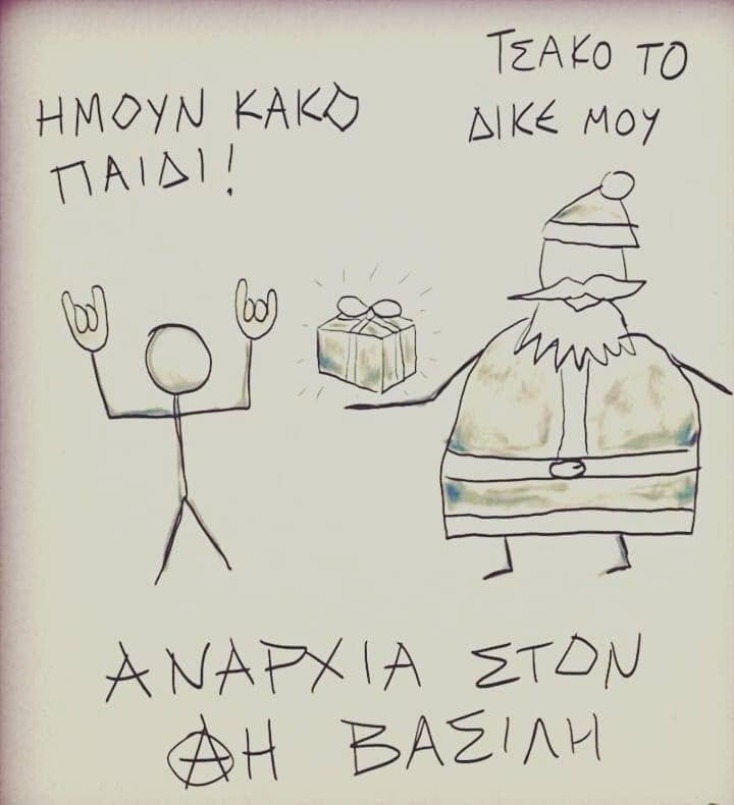 ΗΜΟΥΝ ΚΑΚΟ
ΠΑΙΔΙ!
ΤΣΑΚΟ ΤΟ
ΔΙΚΕ ΜΟΥ
ΑΝΑΡΧΙΑ ΣΤΟΝ
ΑΗ ΒΑΣΙΛΗ